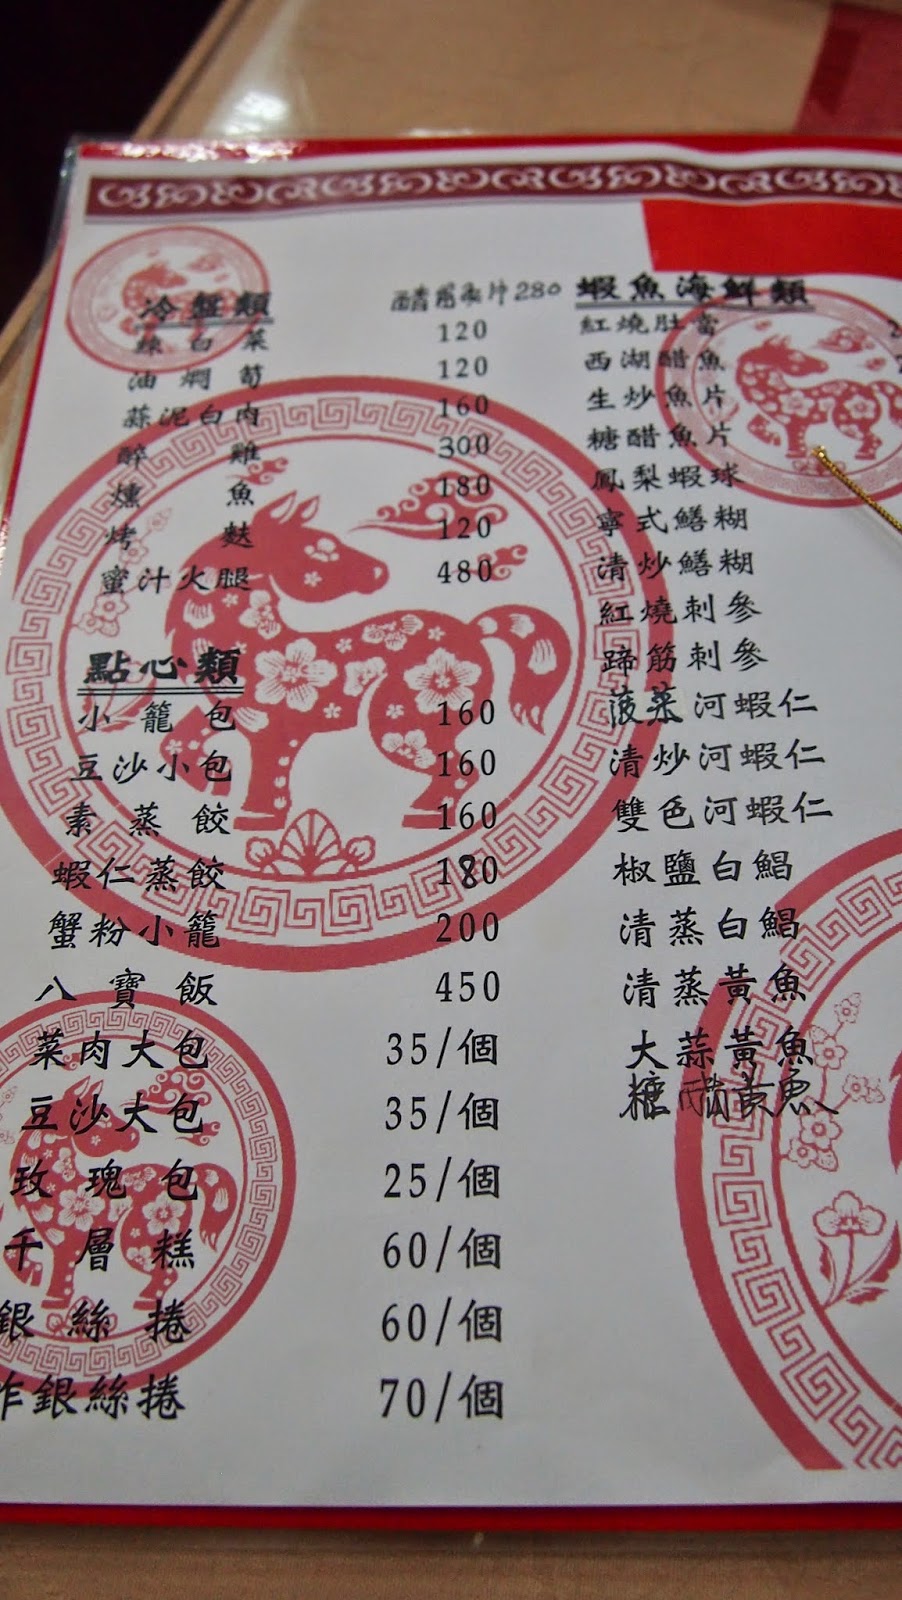 冷盤類
280
辣白菜 120
油燜筍 120
蒜泥白肉 160
醉雞 300
燻魚 180
烤麩 120
蜜汁火腿 480
點心類
小籠包 160
豆沙小包 160
素蒸餃 160
蝦仁蒸餃 180
蟹粉小籠 200
八寶飯 450
菜肉大包 35/個
豆沙大包 35/個
玫瑰包 25/個
千層糕 60/個
銀絲捲 60/個
炸銀絲捲 70/個
蝦魚海鮮類
紅燒肚當
西湖醋魚
生炒魚片
糖醋魚片
鳳梨蝦球
寧式鱔糊
清炒鱔糊
紅燒刺參
蹄筋刺參
菠菜河蝦仁
清炒河蝦仁
雙色河蝦仁
椒鹽白鯧
清蒸白鯧
清蒸黃魚
大蒜黃魚
糖醋黃魚